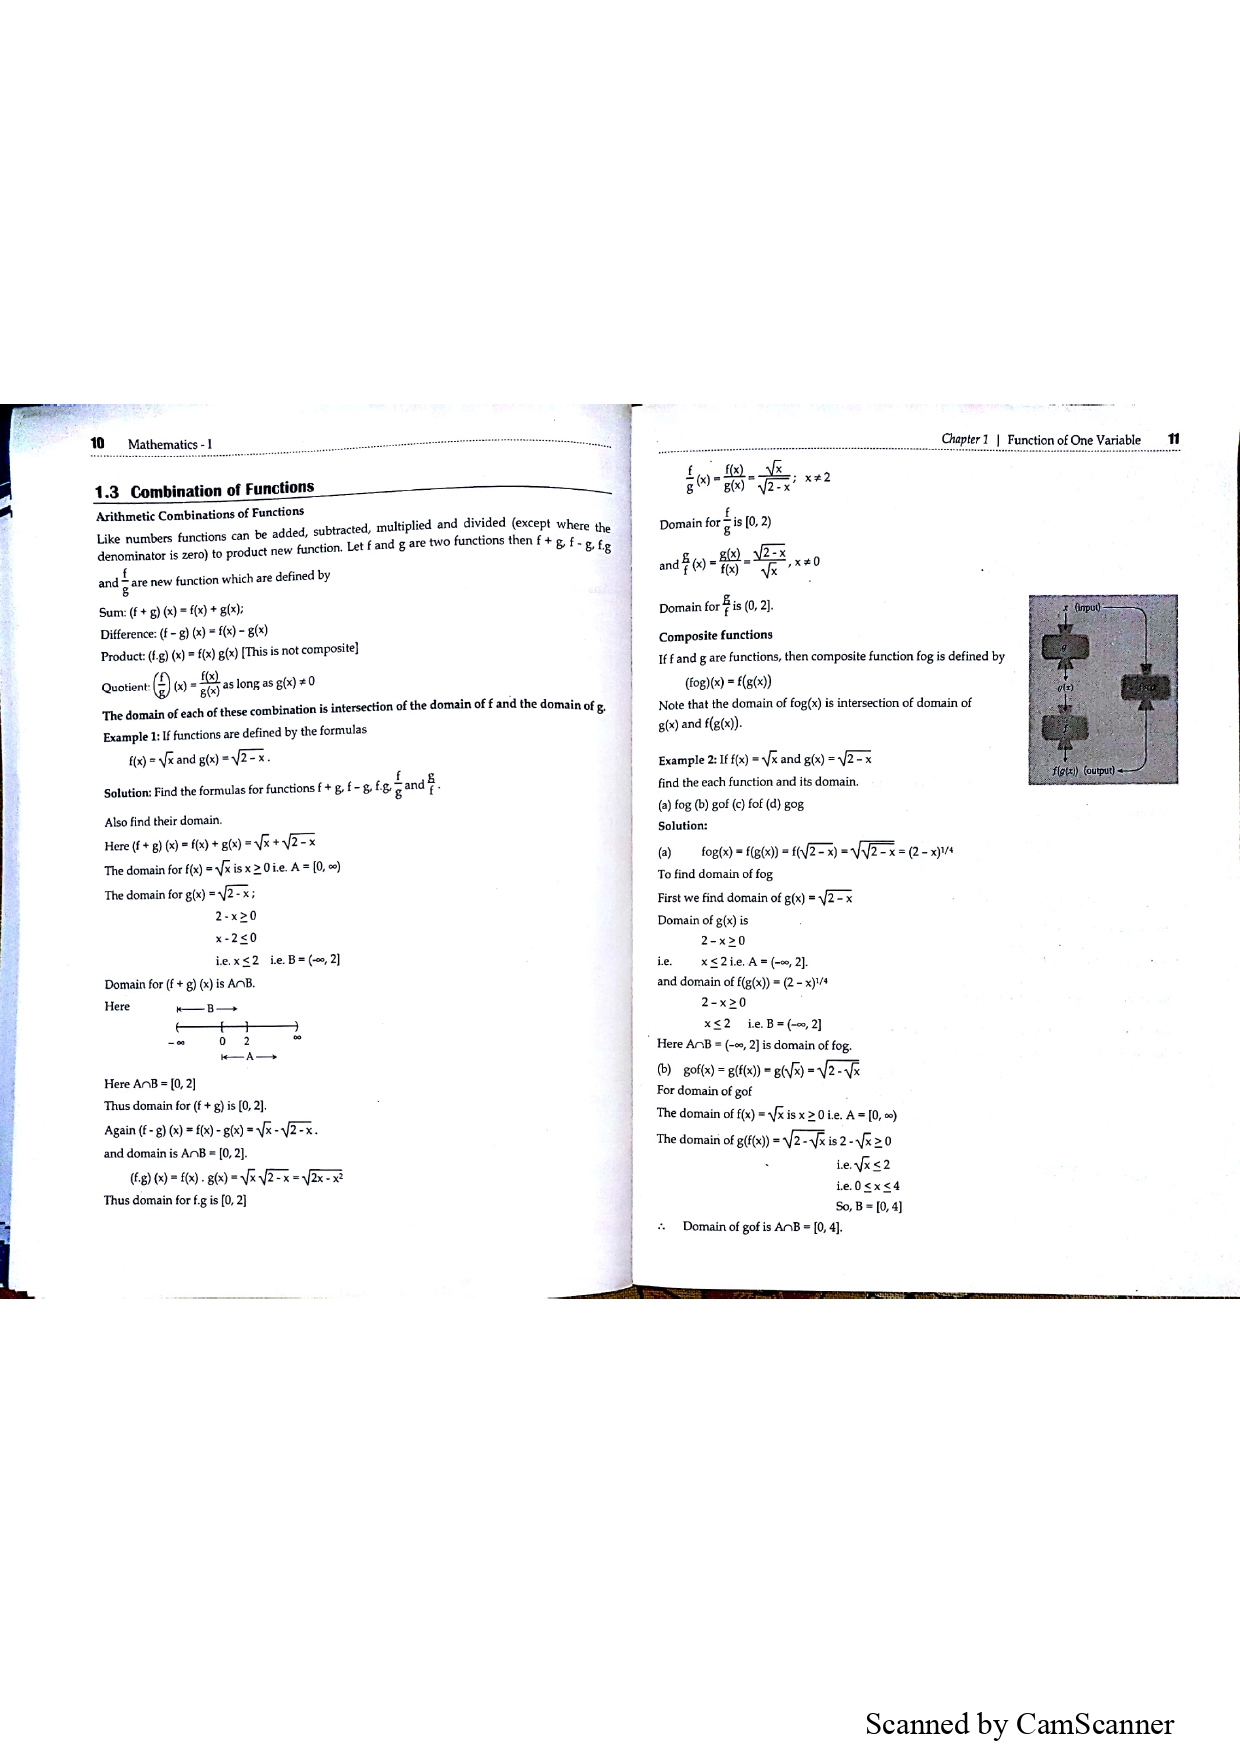 10 Mathematics - I
1.3 Combination of Functions
Arithmetic Combinations of Functions
Like numbers functions can be added, subtracted, multiplied and divided (except where the
denominator is zero) to product new function. Let f and g are two functions then f + g, f - g, f.g
and f/g are new function which are defined by
Sum: (f + g) (x) = f(x) + g(x);
Difference: (f – g) (x) = f(x) – g(x)
Product: (f.g) (x) = f(x) g(x) [This is not composite]
Quotient: (f/g) (x) = f(x)/g(x) as long as g(x) ≠ 0
The domain of each of these combination is intersection of the domain of f and the domain of g.
Example 1: If functions are defined by the formulas
f(x) = √x and g(x) = √(2 – x).
Solution: Find the formulas for functions f + g, f – g, f.g, f/g and g/f.
Also find their domain.
Here (f + g) (x) = f(x) + g(x) = √x + √(2 – x)
The domain for f(x) = √x is x ≥ 0 i.e. A = [0, ∞)
The domain for g(x) = √(2 - x);
2 - x ≥ 0
x - 2 ≤ 0
i.e. x ≤ 2 i.e. B = (-∞, 2]
Domain for (f + g) (x) is A∩B.
Here
B
– ∞ 0 2 ∞
A
Here A∩B = [0, 2]
Thus domain for (f + g) is [0, 2].
Again (f - g) (x) = f(x) - g(x) = √x - √(2 - x).
and domain is A∩B = [0, 2].
(f.g) (x) = f(x) . g(x) = √x √(2 – x) = √(2x - x²)
Thus domain for f.g is [0, 2]
Chapter 1 | Function of One Variable 11
f/g (x) = f(x)/g(x) = √x/√(2 - x); x ≠ 2
Domain for f/g is [0, 2)
and g/f (x) = g(x)/f(x) = √(2 - x)/√x, x ≠ 0
Domain for g/f is (0, 2].
Composite functions
If f and g are functions, then composite function fog is defined by
(fog)(x) = f(g(x))
Note that the domain of fog(x) is intersection of domain of
g(x) and f(g(x)).
x (input)
g
g(x)
f
f(g(x)) (output)
Example 2: If f(x) = √x and g(x) = √(2 – x)
find the each function and its domain.
(a) fog (b) gof (c) fof (d) gog
Solution:
(a) fog(x) = f(g(x)) = f(√(2 – x)) = √√(2 – x) = (2 – x)^1/4
To find domain of fog
First we find domain of g(x) = √(2 – x)
Domain of g(x) is
2 – x ≥ 0
i.e. x ≤ 2 i.e. A = (-∞, 2].
and domain of f(g(x)) = (2 – x)^1/4
2 – x ≥ 0
x ≤ 2 i.e. B = (-∞, 2]
Here A∩B = (-∞, 2] is domain of fog.
(b) gof(x) = g(f(x)) = g(√x) = √(2 - √x)
For domain of gof
The domain of f(x) = √x is x ≥ 0 i.e. A = [0, ∞)
The domain of g(f(x)) = √(2 - √x) is 2 - √x ≥ 0
i.e. √x ≤ 2
i.e. 0 ≤ x ≤ 4
So, B = [0, 4]
∴ Domain of gof is A∩B = [0, 4].
Scanned by CamScanner